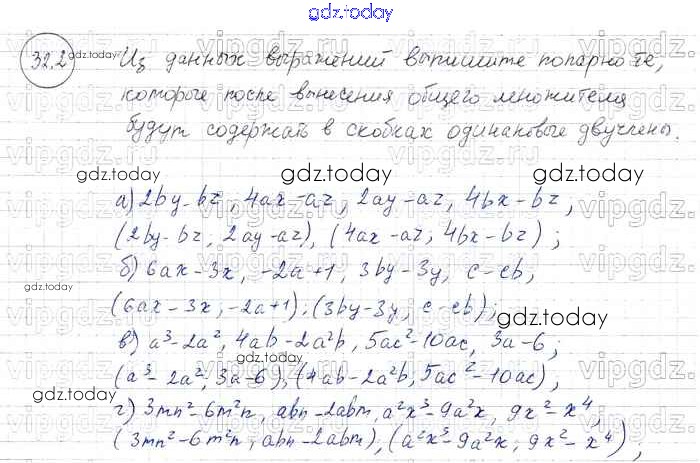 gdz.today
32.2 Из данных выражений выпишите попарно те,
которые после вынесения общего множителя
будут содержать в скобках одинаковые двучлены.
а) 2by-bz, 4ax-az, 2ay-az, 4bx-bz,
(2by-bz; 2ay-az), (4ax-az; 4bx-bz);
б) 6ax-3x, -2a+1, 3by-3y, c-cb,
(6ax-3x, -2a+1), (3by-3y, c-cb);
в) a³-2a², 4ab-2a²b, 5ac²-10ac, 3a-6;
(a³-2a², 3a-6), (4ab-2a²b, 5ac²-10ac),
г) 3mn²-6m²n, abn-2abm, a²x³-9a²x, 9x²-x⁴,
(3mn²-6m²n, abn-2abm), (a²x³-9a²x, 9x²-x⁴);